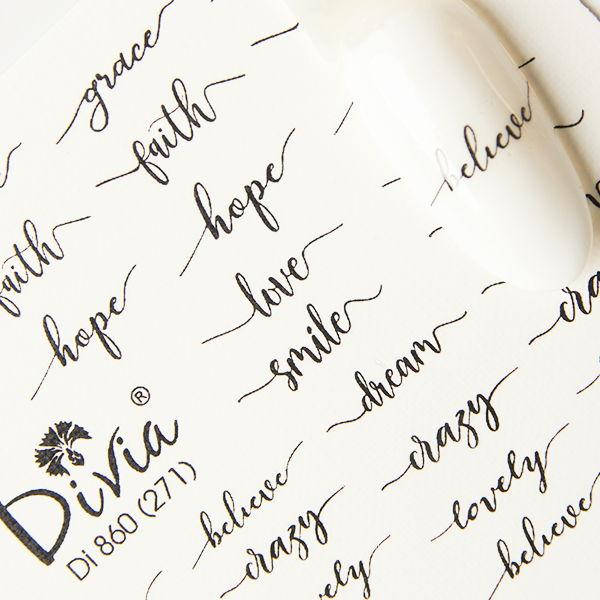 grace
faith
hope
love
smile
dream
crazy
lovely
believe
believe
faith
hope
Divia®
Di 860 (271)
believe
crazy